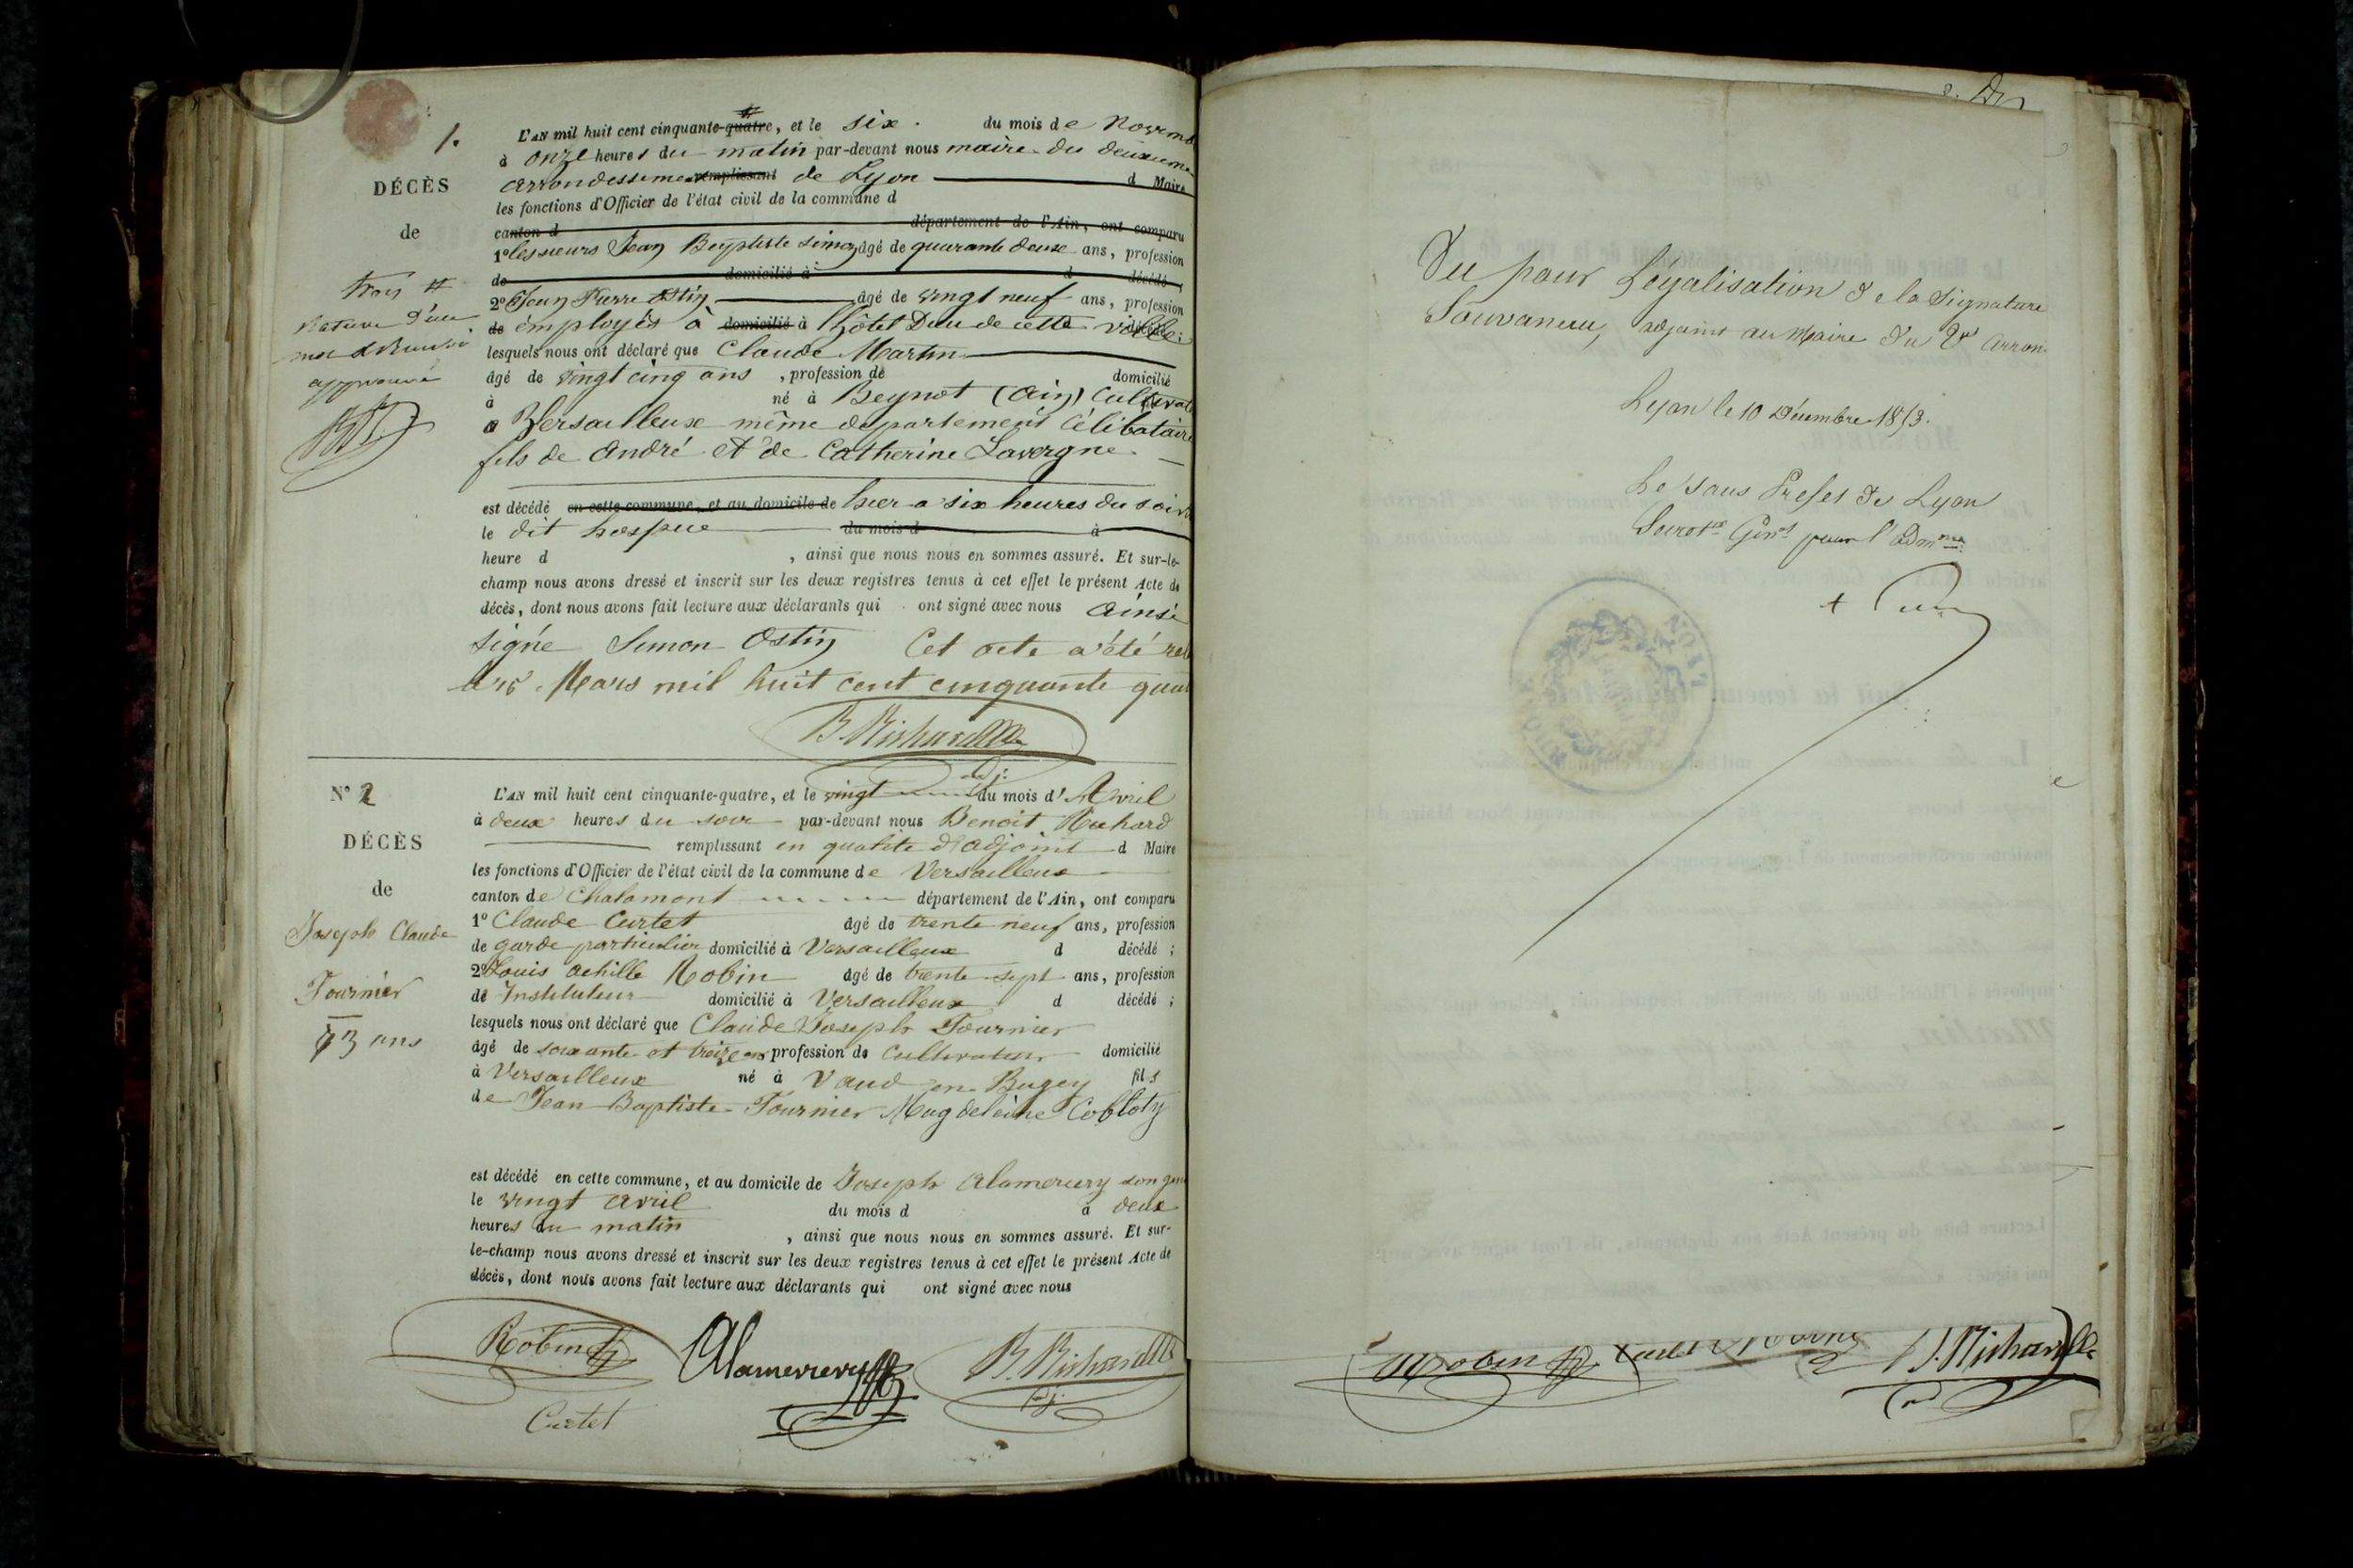 1.
DÉCÈS
de
trois #
rature d'un
approuvé
L'AN mil huit cent cinquante-quatre, et le six du mois de Novemb
à onze heures du matin par-devant nous maire du deuxième
arrondissement remplissant de Lyon d Maire
les fonctions d'Officier de l'état civil de la commune d
canton d département de l'Ain, ont comparu
1° les sieurs Jean Baptiste Simon, âgé de quarante deux ans, profession
de domicilié à d décédé ;
2° Jean Pierre Ostin âgé de vingt neuf ans, profession
de employés à domicilié à l'hôtel Dieu de cette ville
lesquels nous ont déclaré que Claude Martin
âgé de vingt cinq ans, profession de domicilié
à né à Beynot (Ain) Cultivat
a Versailleux même département Célibataire
fils de André et de Catherine Lavergne
est décédé en cette commune, et au domicile de hier a six heures du soir
le dit hospice du mois d à
heure d , ainsi que nous nous en sommes assuré. Et sur-le-
champ nous avons dressé et inscrit sur les deux registres tenus à cet effet le présent Acte de
décès, dont nous avons fait lecture aux déclarants qui ont signé avec nous ainsi
signé Simon Ostin Cet acte a été
Mars mil huit cent cinquante quat
B. Richard
adj:
N° 2
DÉCÈS
de
Joseph Claude
Tournier
73 ans
L'AN mil huit cent cinquante-quatre, et le vingt du mois d'Avril
à deux heures du soir par-devant nous Benoit Richard
remplissant en qualité d'adjoint d Maire
les fonctions d'Officier de l'état civil de la commune de Versailleux
canton de Chalamont département de l'Ain, ont comparu
1° Claude Curtet âgé de trente neuf ans, profession
de garde particulier domicilié à Versailleux d décédé ;
2° Louis Achille Robin âgé de trente sept ans, profession
de Instituteur domicilié à Versailleux d décédé ;
lesquels nous ont déclaré que Claude Joseph Tournier
âgé de soixante et treize ans profession de Cultivateur domicilié
à Versailleux né à Vaud en Bugey fils
de Jean Baptiste Tournier Magdeleine Cobloty
est décédé en cette commune, et au domicile de Joseph Alamercery son gen
le vingt avril du mois d à deux
heures du matin , ainsi que nous nous en sommes assuré. Et sur-
le-champ nous avons dressé et inscrit sur les deux registres tenus à cet effet le présent Acte de
décès, dont nous avons fait lecture aux déclarants qui ont signé avec nous
Robin Alamercery B. Richard
adj.
Curtet
Vu pour Légalisation de la Signature
Souvaneau, adjoint au Maire du 2e Arron.
Lyon le 10 Décembre 1853.
Le Sous Prefet de Lyon
Secret.re Gén.al pour l'adm.on
Robin Curtet B. Richard